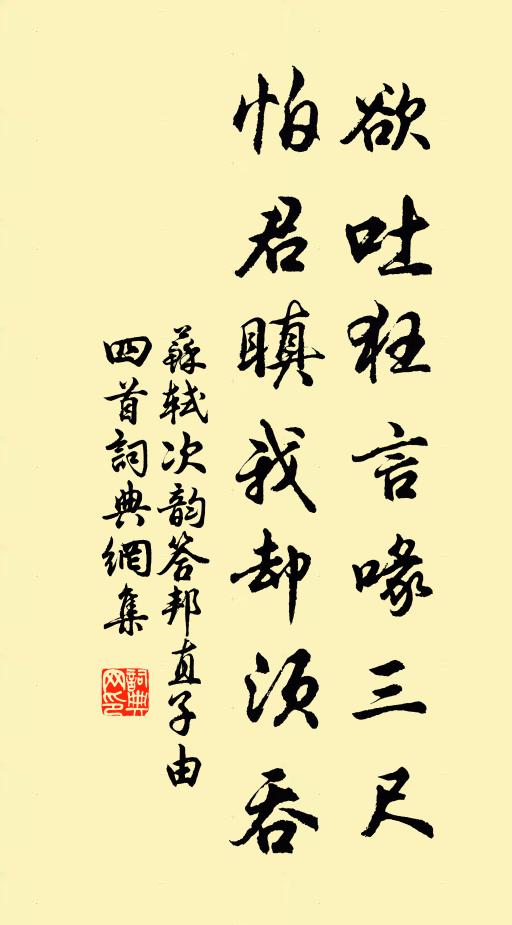 欲吐狂言喙三尺
怕君瞋我却须吞
蘇軾次韵答邦直子由
四首詞典網集
詞典
网印